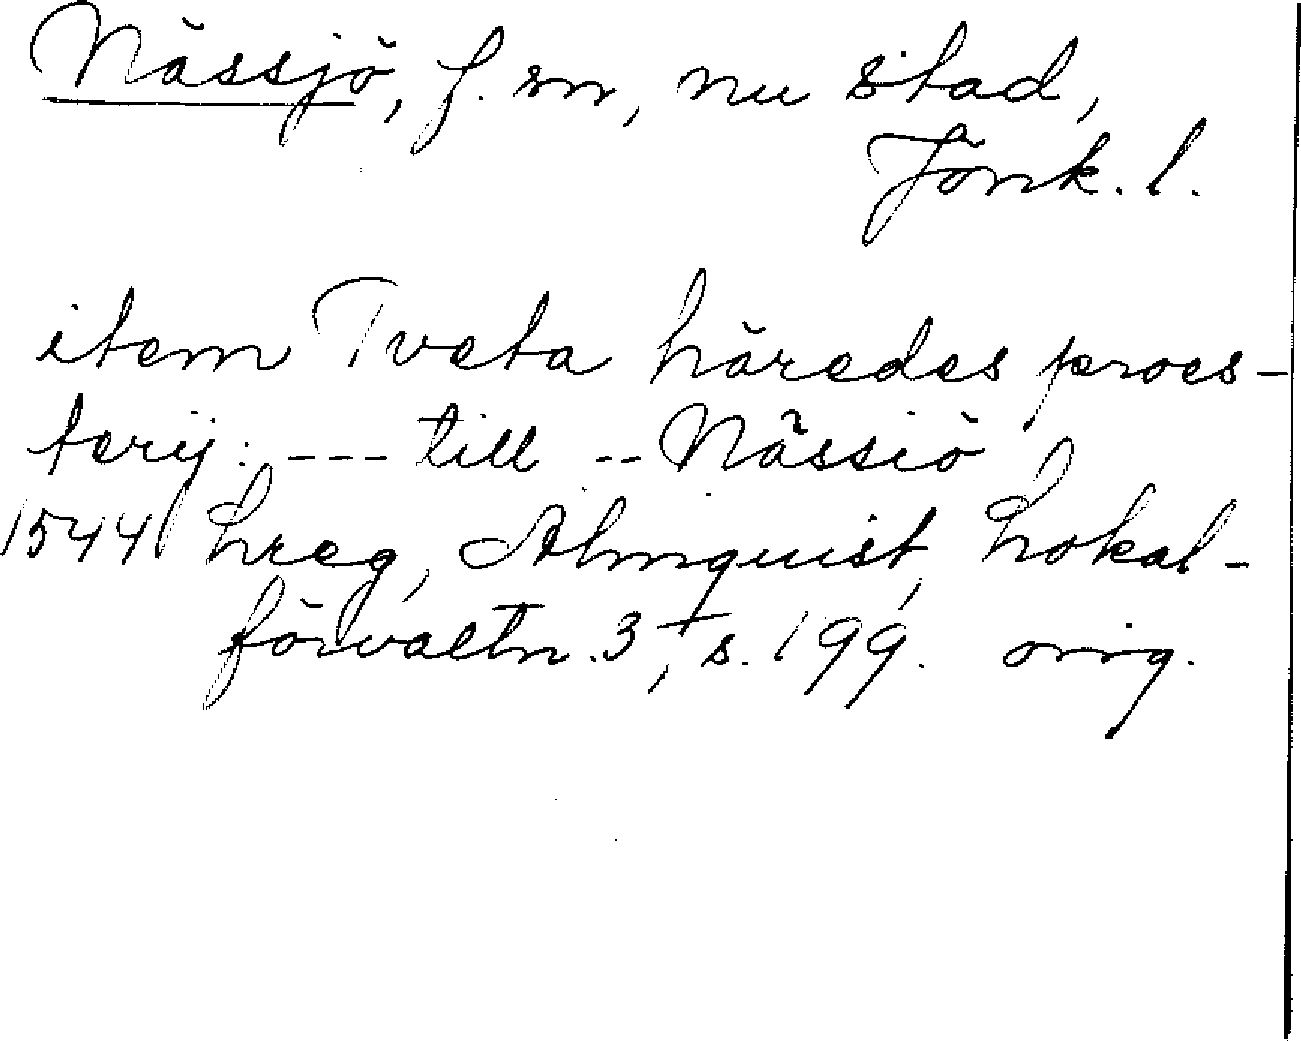 Nässjö, f. sn, nu stad,
Jönk. l.
item Tveta häredes proes-
terij: --- till -- Nässiö
1544 Lreg, Almquist, Lokal-
förvaltn. 3, s. 199. orig.